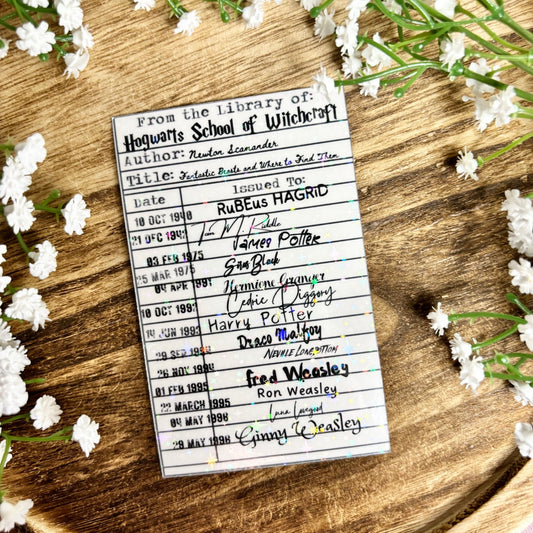 From the Library of:
Hogwarts School of Witchcraft
Author: Newton Scamander
Title: Fantastic Beasts and Where to Find Them
Date Issued To:
10 OCT 1940 RuBEus HAGRiD
21 DEC 1942 Tom M. Riddle
03 FEB 1975 James Potter
25 MAR 1975 Sirius Black
04 APR 1991 Hermione Granger
10 OCT 1992 Cedric Diggory
14 JUN 1993 Harry Potter
29 SEP 1994 Draco Malfoy
26 NOV 1995 Neville Longbottom
01 FEB 1995 Fred Weasley
22 MARCH 1995 Ron Weasley
04 MAY 1996 Luna Lovegood
29 MAY 1996 Ginny Weasley